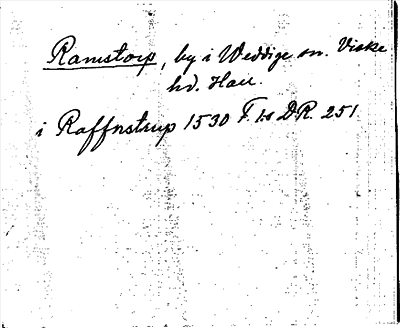 Ramstorp, by i Veddige sn. Viske
hd. Hall.
i Raffnstrup 1530 F Is DR. 251